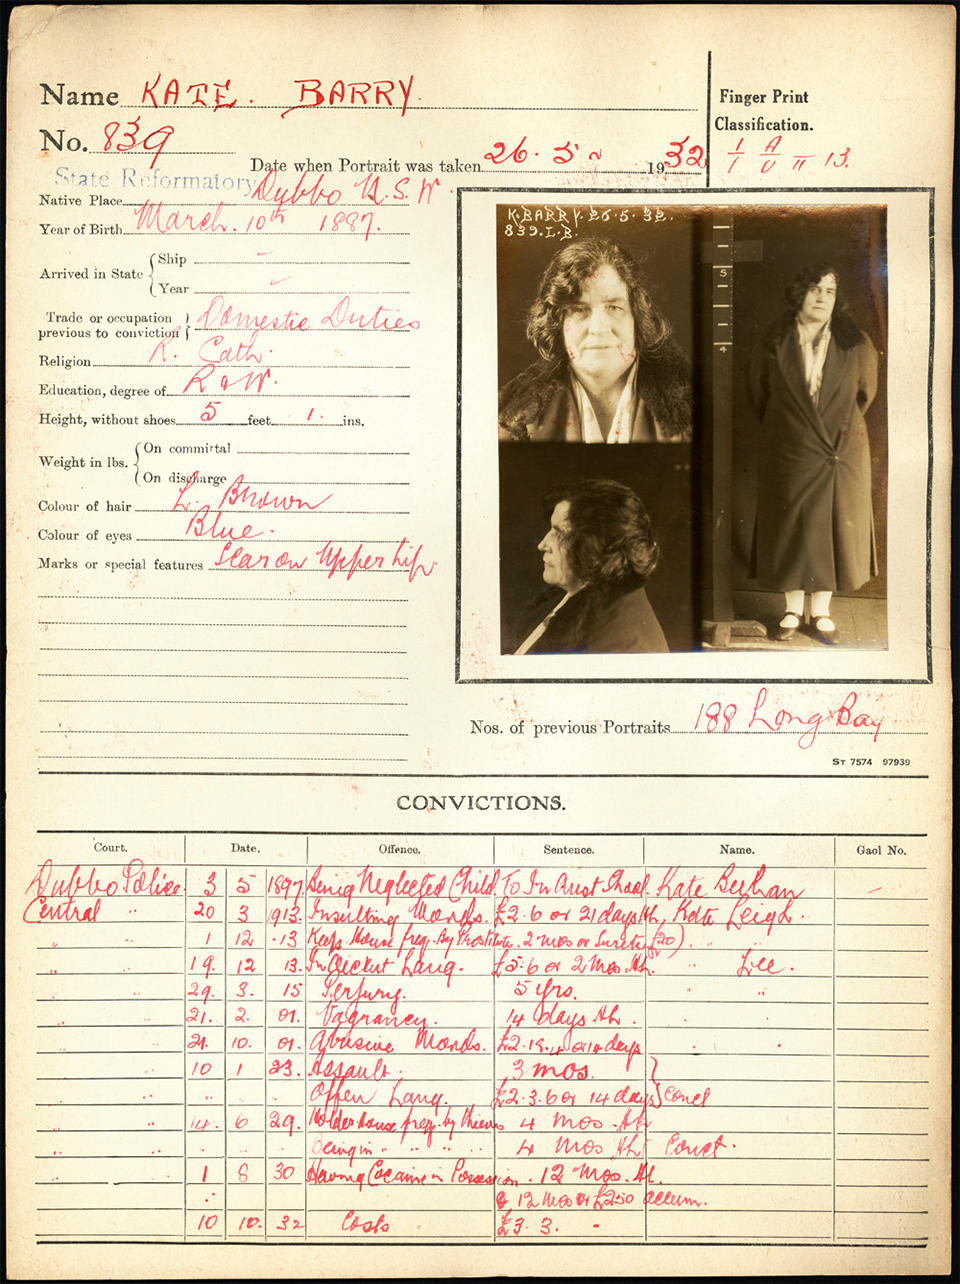 Name KATE. BARRY.
Finger Print
Classification.
No. 839
1 A
1 U π 13.
Date when Portrait was taken 26. 5 ~ 1932
State Reformatory
Native Place Dubbo N.S.W
Year of Birth March. 10th 1887.
Arrived in State { Ship
Year
Trade or occupation
previous to conviction } Domestic Duties
Religion R. Cath.
Education, degree of R & W.
Height, without shoes 5 feet 1. ins.
Weight in lbs. { On committal
On discharge
Colour of hair L. Brown
Colour of eyes Blue.
Marks or special features Scar on Upper Lip
K.BARRY. 26.5.32.
839.L.B.
5
4
Nos. of previous Portraits 188 Long Bay
ST 7574 97939
CONVICTIONS.
Court. Date. Offence. Sentence. Name. Gaol No.
Dubbo Police 3 5 1897 Being Neglected Child. To In Aust Shool Kate Beehan —
Central " 20 3 1913. Insulting Words. £2.6 or 21 days Hl, Kate Leigh.
" " 1 12 .13 Keep House freq. By Prostitute. 2 mos or Surety £20). " "
" " 19. 12 13. Indecent Lang. £5.6 or 2 Mos Hl. " Lee.
29. 3. 15 Perjury. 5 yrs. " "
" " 21. 2. 01. Vagrancy. 14 days Hl.
21. 10. 01. Abusive Words. or 14 days
" " 10 1 23. Assault. 3 mos. }
" " " " " Offen Lang. £2.3.6 or 14 days } Conct
" " 14. 6 29. House freq. by thieves 4 mos. Hl
" " Being in " " " " 4 Mos Hl Conct.
" " 1 8 30 Having Cocaine in Possession. 12 Mos. Hl.
& 12 mos or £250 accum.
10 10. 32 Costs £3. 3. -